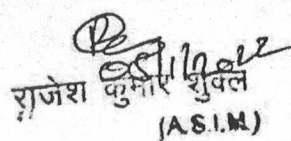 राजेश कुमार शुक्ल
(A.S.I.M.)